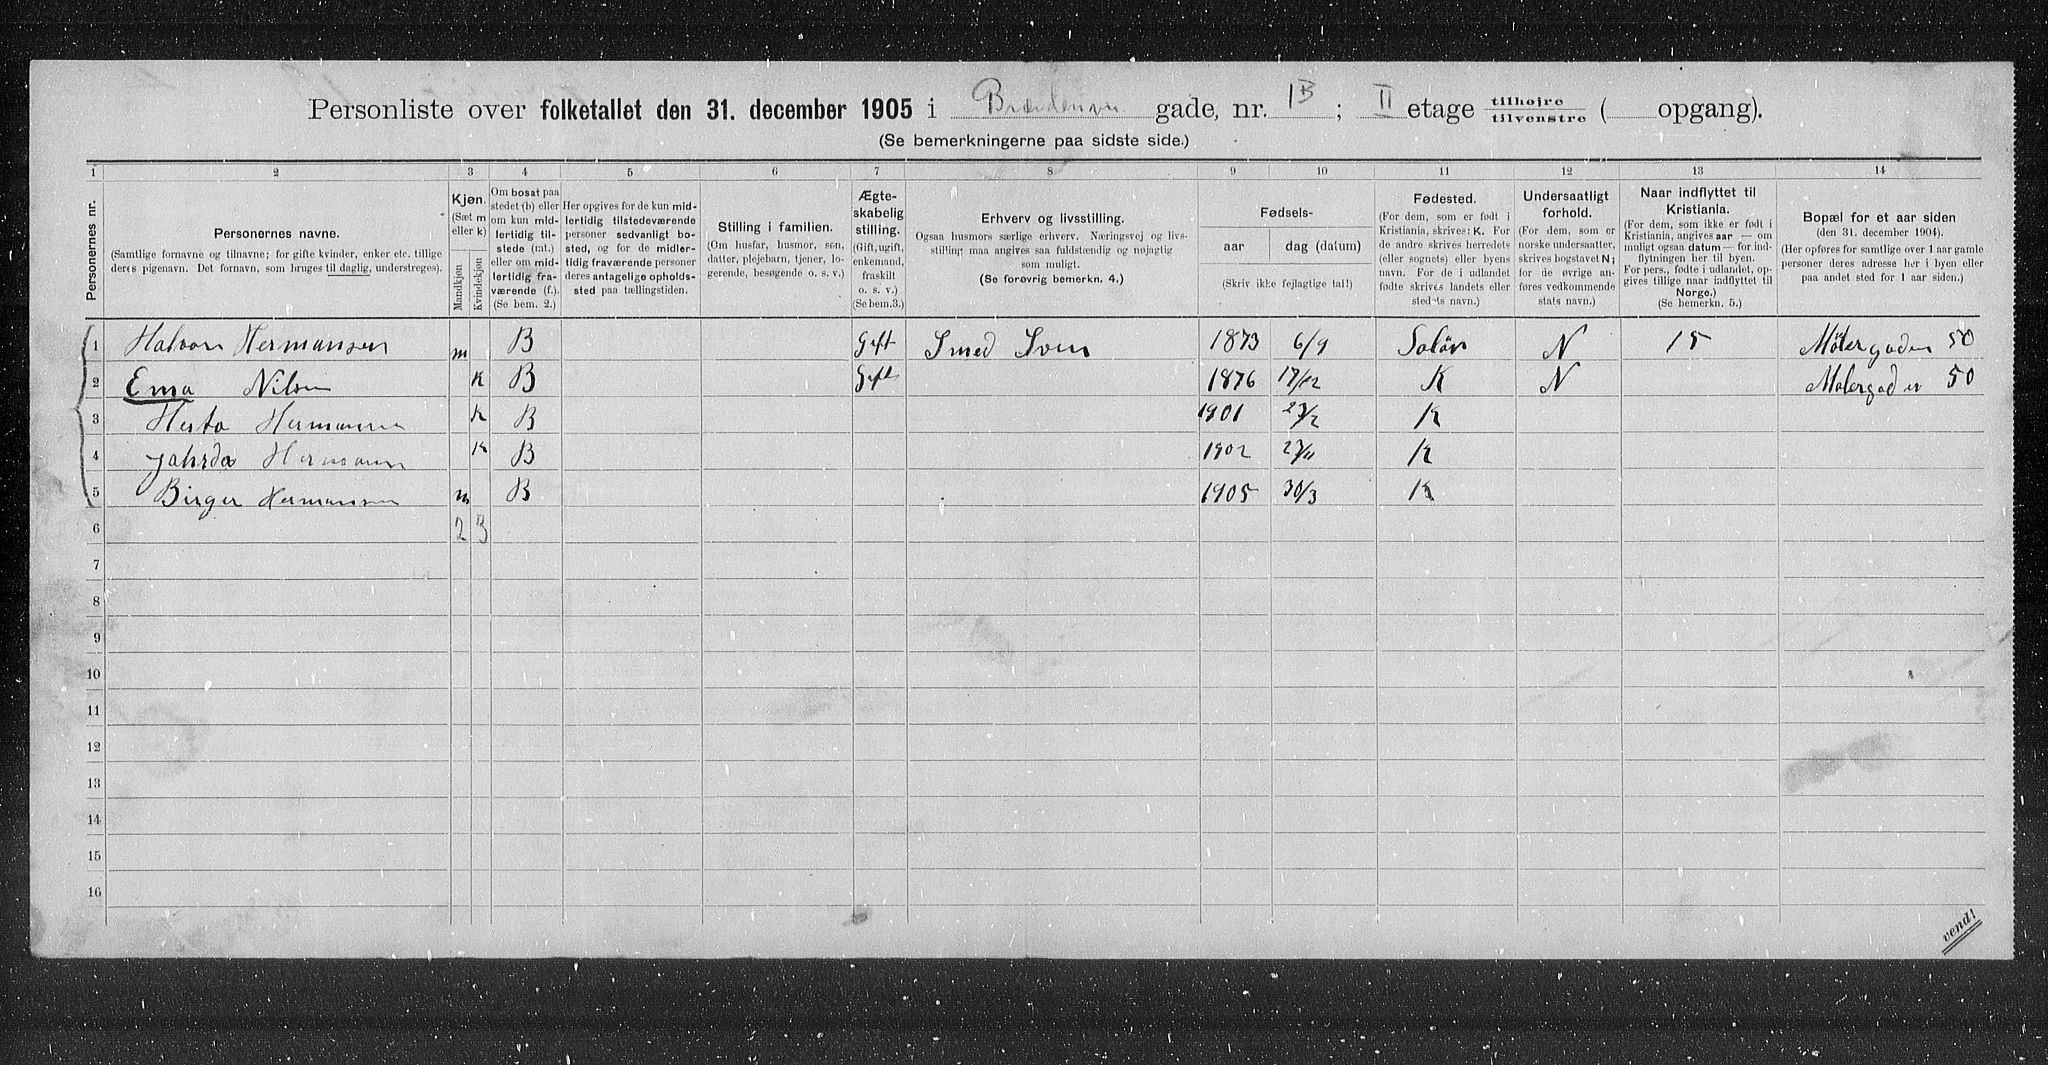 Personliste over folketallet den 31. december 1905 i gade, nr. 1B ; II etage tilhøjre tilvenstre ( opgang).
(Se bemerkningerne paa sidste side.)
1 2 3 4 5 6 7 8 9 10 11 12 13 14
Personernes nr.
Personernes navne.
(Samtlige fornavne og tilnavne; for gifte kvinder, enker etc. tillige deres pigenavn. Det fornavn, som bruges til daglig, understreges).
Kjøn.
(Sæt m eller k)
Mandkjøn
Kvindekjøn
Om bosat paa stedet (b) eller om kun midlertidig tilstede (mt.) eller om midlertidig fraværende (f.). (Se bem. 2.)
Her opgives for de kun midlertidig tilstedeværende personer sedvanligt bosted, og for de midlertidig fraværende personer deres antagelige opholdssted paa tællingstiden.
Stilling i familien.
(Om husfar, husmor, søn, datter, plejebarn, tjener, logerende, besøgende o. s. v.)
Ægteskabelig stilling.
(Gift, ugift, enkemand, fraskilt o. s. v.) (Se bem. 3.)
Erhverv og livsstilling.
Ogsaa husmors særlige erhverv. Næringsvej og livsstilling maa angives saa fuldstændig og nøjagtig som muligt.
(Se forøvrig bemerkn. 4.)
Fødsels-
aar dag (datum)
(Skriv ikke fejlagtige tal!)
Fødested.
(For dem, som er født i Kristiania, skrives: K. For de andre skrives herredets (eller sognets) eller byens navn. For de i udlandet fødte skrives landets eller stedets navn.)
Undersaatligt forhold.
(For dem, som er norske undersaatter, skrives bogstavet N; for de øvrige anføres vedkommende stats navn.)
Naar indflyttet til Kristiania.
(For dem, som ikke er født i Kristiania, angives aar — om muligt ogsaa datum — for indflytningen her til byen. For pers., fødte i udlandet, opgives tillige naar indflyttet til Norge.) (Se bemerkn. 5.)
Bopæl for et aar siden
(den 31. december 1904).
(Her opføres for samtlige over 1 aar gamle personer deres adresse her i byen eller paa andet sted for 1 aar siden.)
1 Halvor Hermansen m B Gift Smed 1873 6/9 Solør N 15 50
2 Ema Nilsen K B Gift 1876 17/12 K N 50
3 Herta Hermansen K B 1901 K
4 Hermansen K B 1902 K
5 Birger Hermansen m B 1905 30/3 K
6 2 3
7
8
9
10
11
12
13
14
15
16
vend!